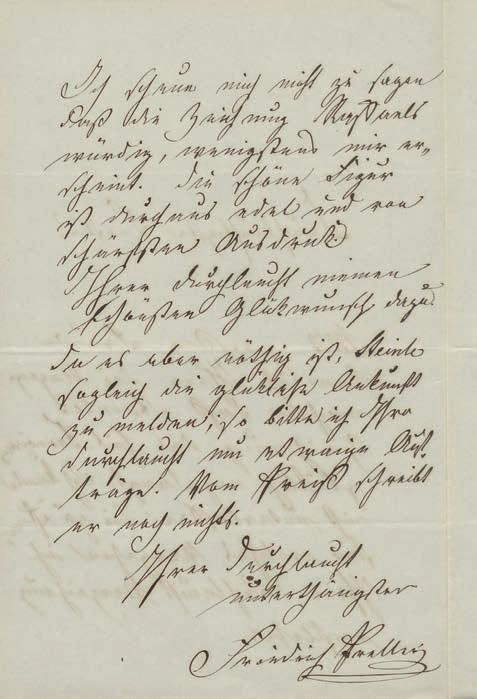 Ich scheue mich nicht zu sagen
daß die Zeichnung Raffaels
würdig, wenigstens mir er-
scheint. die schöne Figur
ist durchaus edel und von
schärfsten Ausdruk.
Ihrer Durchlaucht meinen
schönsten Glükwunsch dazu.
da es aber nöthig ist, Steinle
sogleich die glükliche Ankunft
zu melden, so bitte ich Ihro
durchlaucht um etwaige Auf-
träge. Vom Preiß schreibt
er noch nichts.
Ihrer Durchlaucht
unterthänigster
Friedrich Preller